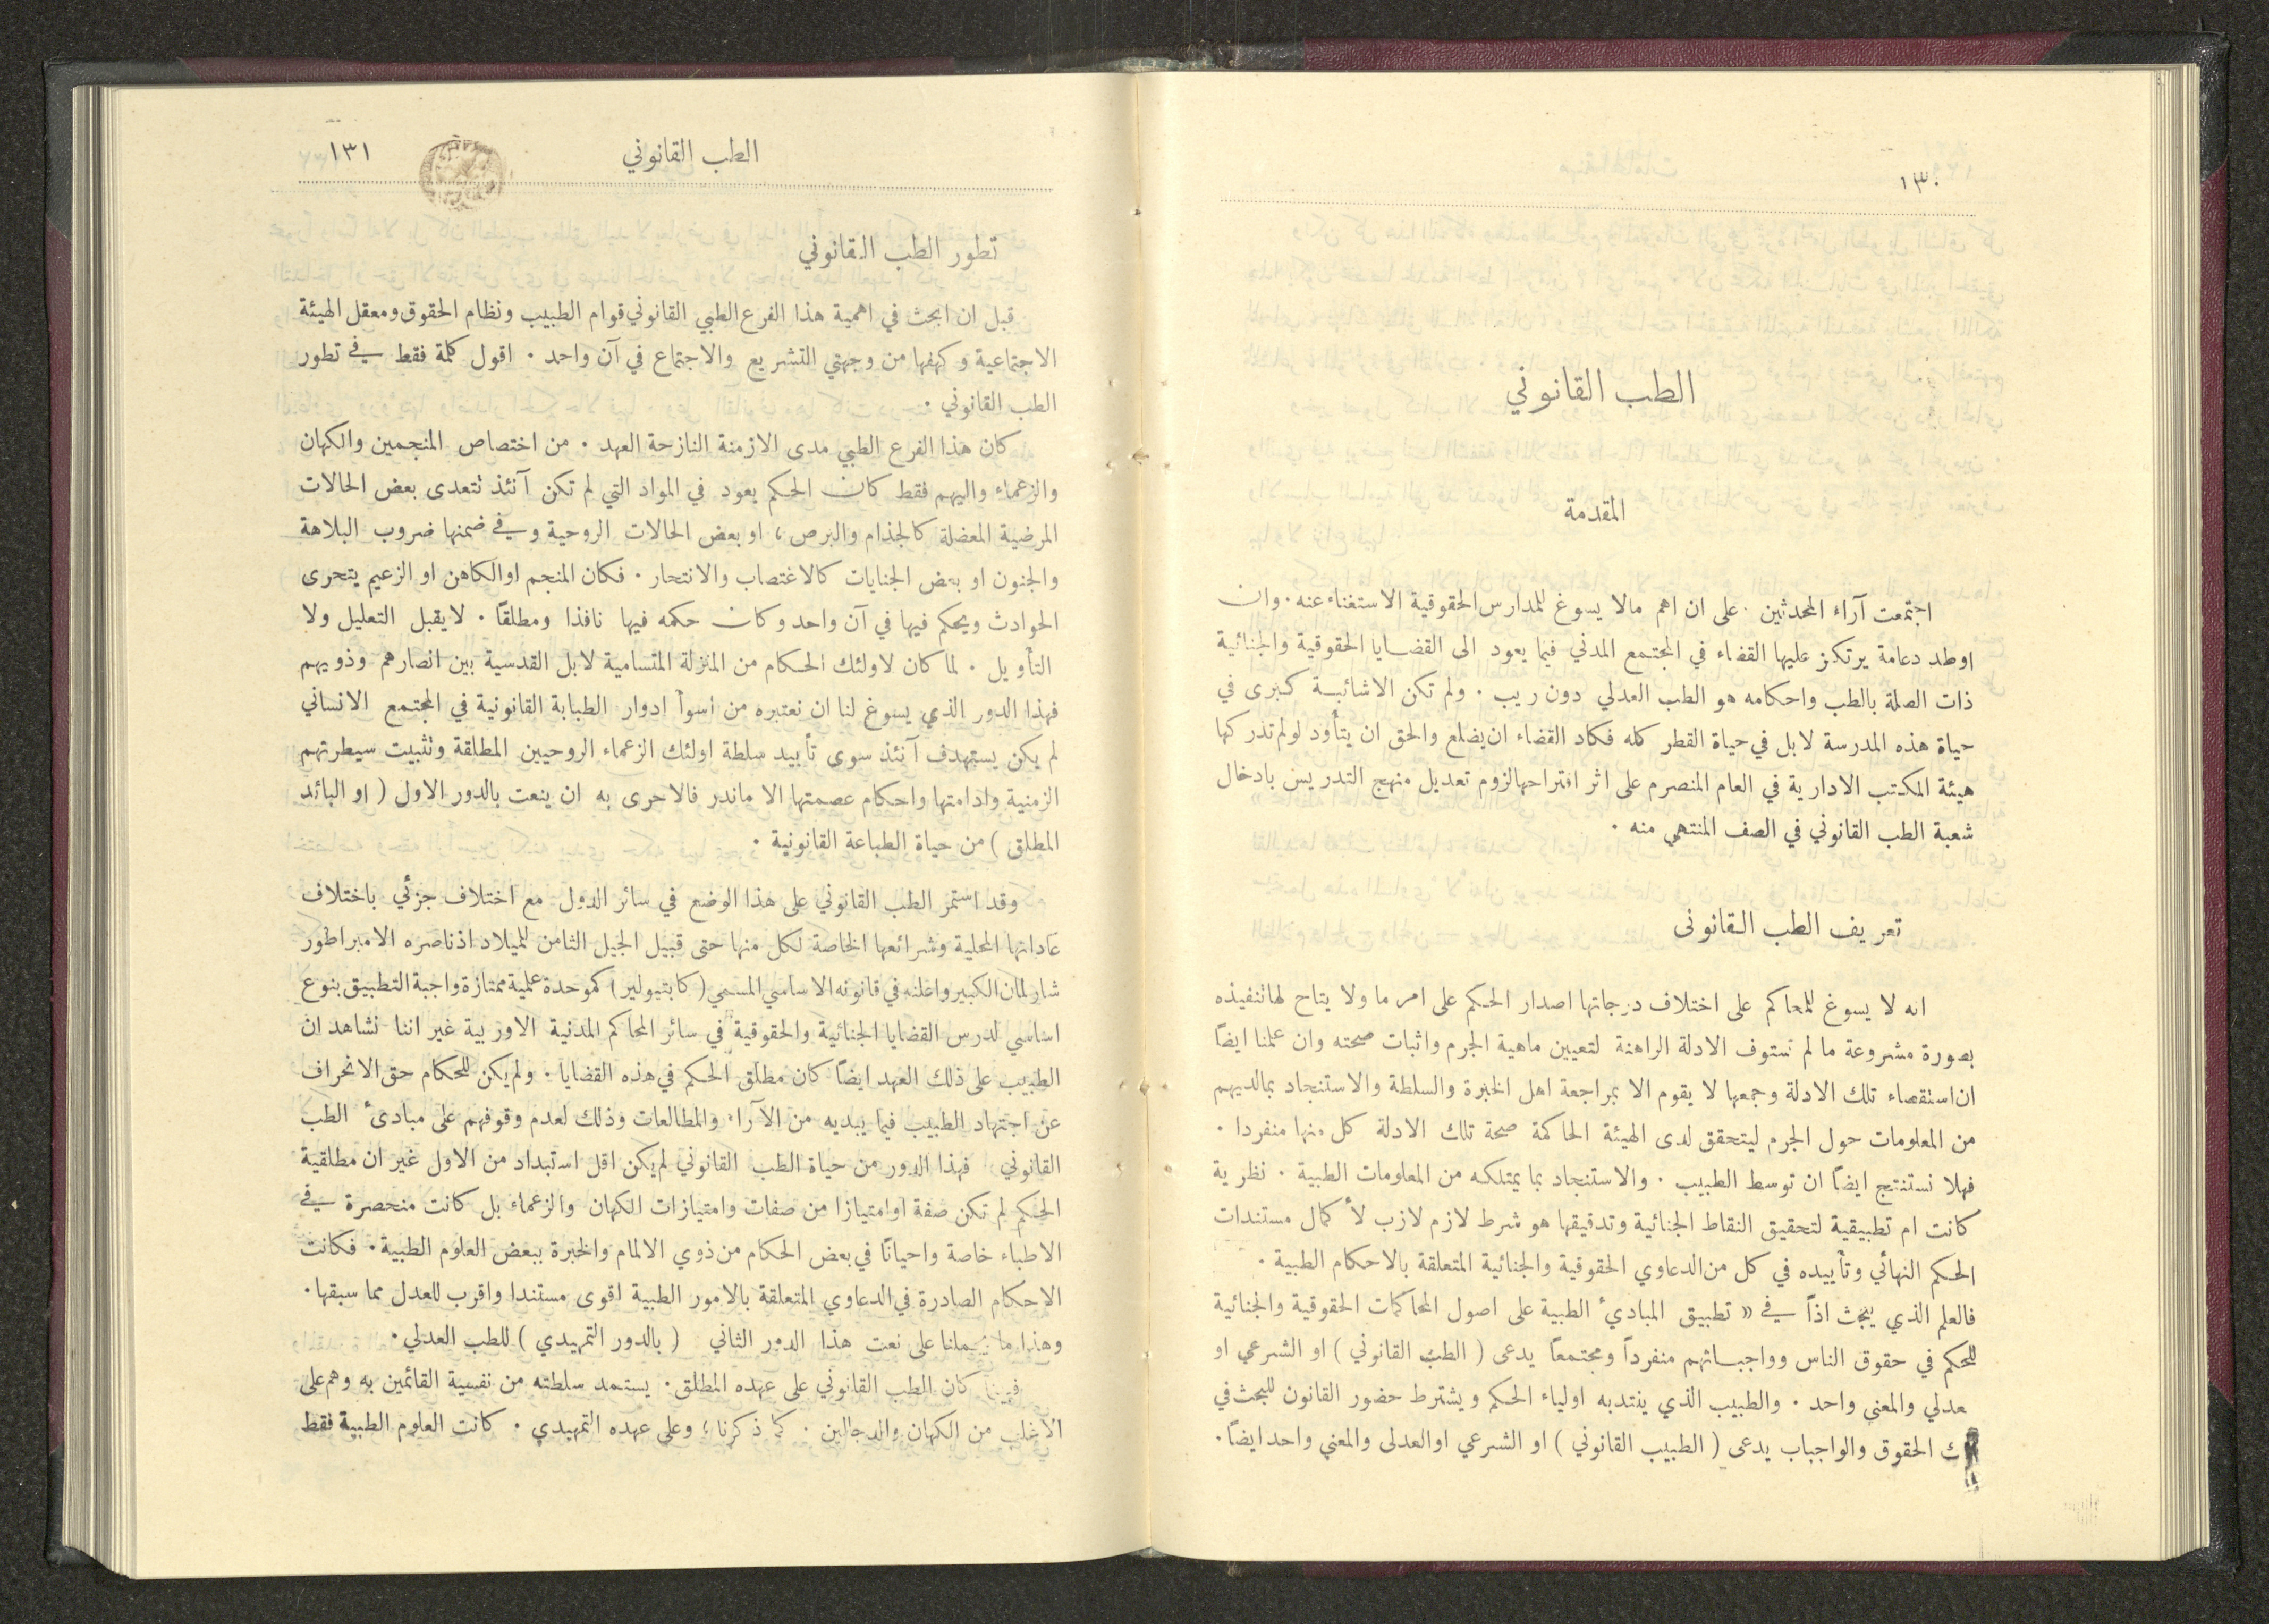 ١٣٠
الطب القانوني
المقدمة
اجتمعت آراء المحدثين على ان اهم مالا يسوغ للمدارس الحقوقية الاستغناء عنه . وان
اوطد دعامة يرتكز عليها القضاء في المجتمع المدني فيما يعود الى القضايا الحقوقية والجنائية
ذات الصلة بالطب واحكامه هو الطب العدلي دون ريب . ولم تكن الاشائبة كبرى في
حياة هذه المدرسة لا بل في حياة القطر كله فكاد القضاء ان يضلع والحق ان يتأود لولم تدركها
هيئة المكتب الادارية في العام المنصرم على اثر اقتراحها لزوم تعديل منهج التدريس بادخال
شعبة الطب القانوني في الصف المنتهي منه .
تعريف الطب القانونى
انه لا يسوغ للمحاكم على اختلاف درجاتها اصدار الحكم على امر ما ولا يتاح لها تنفيذه
بصورة مشروعة ما لم تستوف الادلة الراهنة لتعيين ماهية الجرم واثبات صحته وان علمنا ايضاً
ان استقصاء تلك الادلة وجمعها لا يقوم الا بمراجعة اهل الخبرة والسلطة والاستنجاد بمالديهم
من المعلومات حول الجرم ليتحقق لدى الهيئة الحاكمة صحة تلك الادلة كل منها منفردا .
فهلا نستنتج ايضاً ان توسط الطبيب . والاستنجاد بما يمتلكه من المعلومات الطبية . نظرية
كانت ام تطبيقية لتحقيق النقاط الجنائية وتدقيقها هو شرط لازم لازب لأكمال مستندات
الحكم النهائي وتأييده في كل من الدعاوي الحقوقية والجنائية المتعلقة بالاحكام الطبية .
فالعلم الذي يبحث اذاً في « تطبيق المبادئ الطبية على اصول المحاكمات الحقوقية والجنائية
للحكم في حقوق الناس وواجباتهم منفرداً ومجتمعاً يدعى ( الطب القانوني ) او الشرعي او
عدلي والمعنى واحد . والطبيب الذي ينتدبه اولياء الحكم ويشترط حضور القانون للبحث في
ك الحقوق والواجبات يدعى ( الطبيب القانوني ) او الشرعي اوالعدلى والمعني واحد ايضاً .
الطب القانوني
١٣١
تطور الطب القانوني
قبل ان ابحث في اهمية هذا الفرع الطبي القانوني قوام الطبيب ونظام الحقوق ومعقل الهيئة
الاجتماعية وكهفها من وجهتي التشريع والاجتماع في آن واحد . اقول كلمة فقط في تطور
الطب القانوني .
كان هذا الفرع الطبي مدى الازمنة النازحة العهد . من اختصاص المنجمين والكهان
والزعماء واليهم فقط كان الحكم يعود في المواد التي لم تكن آنئذ تتعدى بعض الحالات
المرضية المعضلة كالجذام والبرص ، او بعض الحالات الروحية وفي ضمنها ضروب البلاهة
والجنون او بعض الجنايات كالاغتصاب والانتحار . فكان المنجم اوالكاهن او الزعيم يتحرى
الحوادث ويحكم فيها في آن واحد وكان حكمه فيها نافذا ومطلقاً . لايقبل التعليل ولا
التأويل . لما كان لاولئك الحكام من المنزلة المتسامية لابل القدسية بين انصارهم وذويهم
فهذا الدور الذي يسوغ لنا ان نعتبره من اسوأ ادوار الطبابة القانونية في المجتمع الانساني
لم يكن يستهدف آنئذ سوى تأييد سلطة اولئك الزعماء الروحيين المطلقة وتثبيت سيطرتهم
الزمنية وادامتها واحكام عصمتها الا ماندر فالاحرى به ان ينعت بالدور الاول ( او البائد
المطلق ) من حياة الطباعة القانونية .
وقد استمر الطب القانوني على هذا الوضع في سائر الدول مع اختلاف جزئي باختلاف
عاداتها المحلية وشرائعها الخاصة لكل منها حتى قبيل الجيل الثامن للميلاد اذناصره الامبراطور
شارلمان الكبير واعلنه في قانونه الاساسي المسمى ( كابتيولير ) كموحدة علمية ممتازة واجبة التطبيق بنوع
اساسي لدرس القضايا الجنائية والحقوقية في سائر المحاكم المدنية الاوربية غير اننا نشاهد ان
الطبيب على ذلك العهد ايضاً كان مطلق الحكم في هذه القضايا . ولم يكن للحكام حق الانحراف
عن اجتهاد الطبيب فيما يبديه من الآراء والمطالعات وذلك لعدم وقوفهم على مبادئ الطب
القانوني فهذا الدور من حياة الطب القانوني لم يكن اقل استبداد من الاول غير ان مطلقية
الحكم لم تكن صفة اوامتيازا من صفات وامتيازات الكهان والزعماء بل كانت منحصرة في
الاطباء خاصة واحيانًا في بعض الحكام من ذوي الالمام والخبرة ببعض العلوم الطبية . فكانت
الاحكام الصادرة في الدعاوي المتعلقة بالامور الطبية اقوى مستندا واقرب للعدل مما سبقها .
وهذا ما يحملنا على نعت هذا الدور الثاني ( بالدور التمهيدي ) للطب العدلي .
كان الطب القانوني على عهده المطلق . يستمد سلطته من نفسية القائمين به وهم على
الاغلب من الكهان والدجالين . كما ذكرنا ؛ وعلى عهده التمهيدي . كانت العلوم الطبية فقط